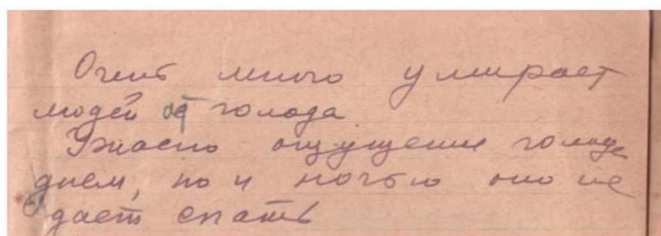 Очень много умирает
людей от голода
Ужасно ощущение голода
днем, но и ночью оно не
дает спать